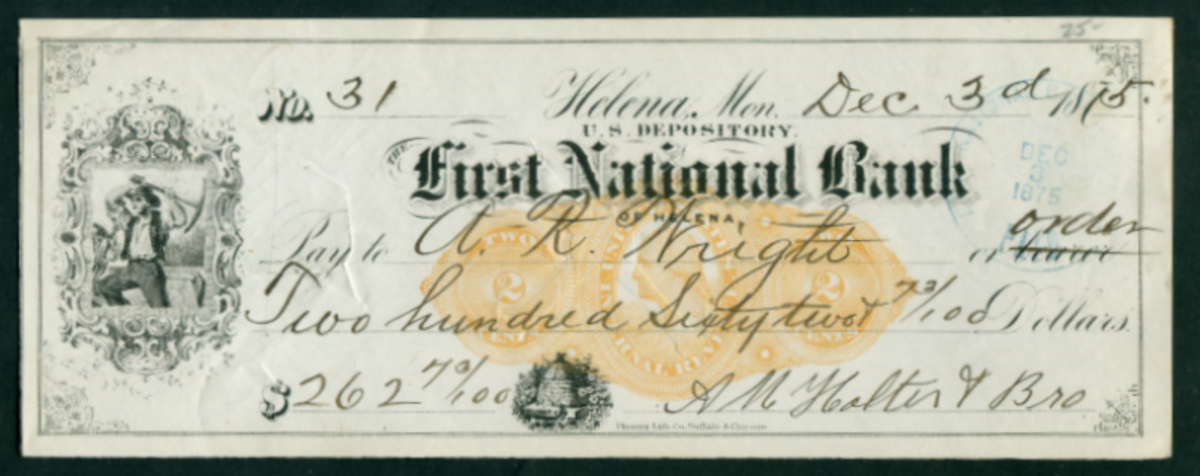 25-
No. 31 Helena, Mon. Dec 3d 1875.
U.S. DEPOSITORY.
THE First National Bank
OF HELENA,
DEC
3
1875
Pay to A. R. Wright or bearer order
Two hundred Sixty two & /100 Dollars.
$262 /100 A M Holter & Bro
TWO 2 CENTS
2